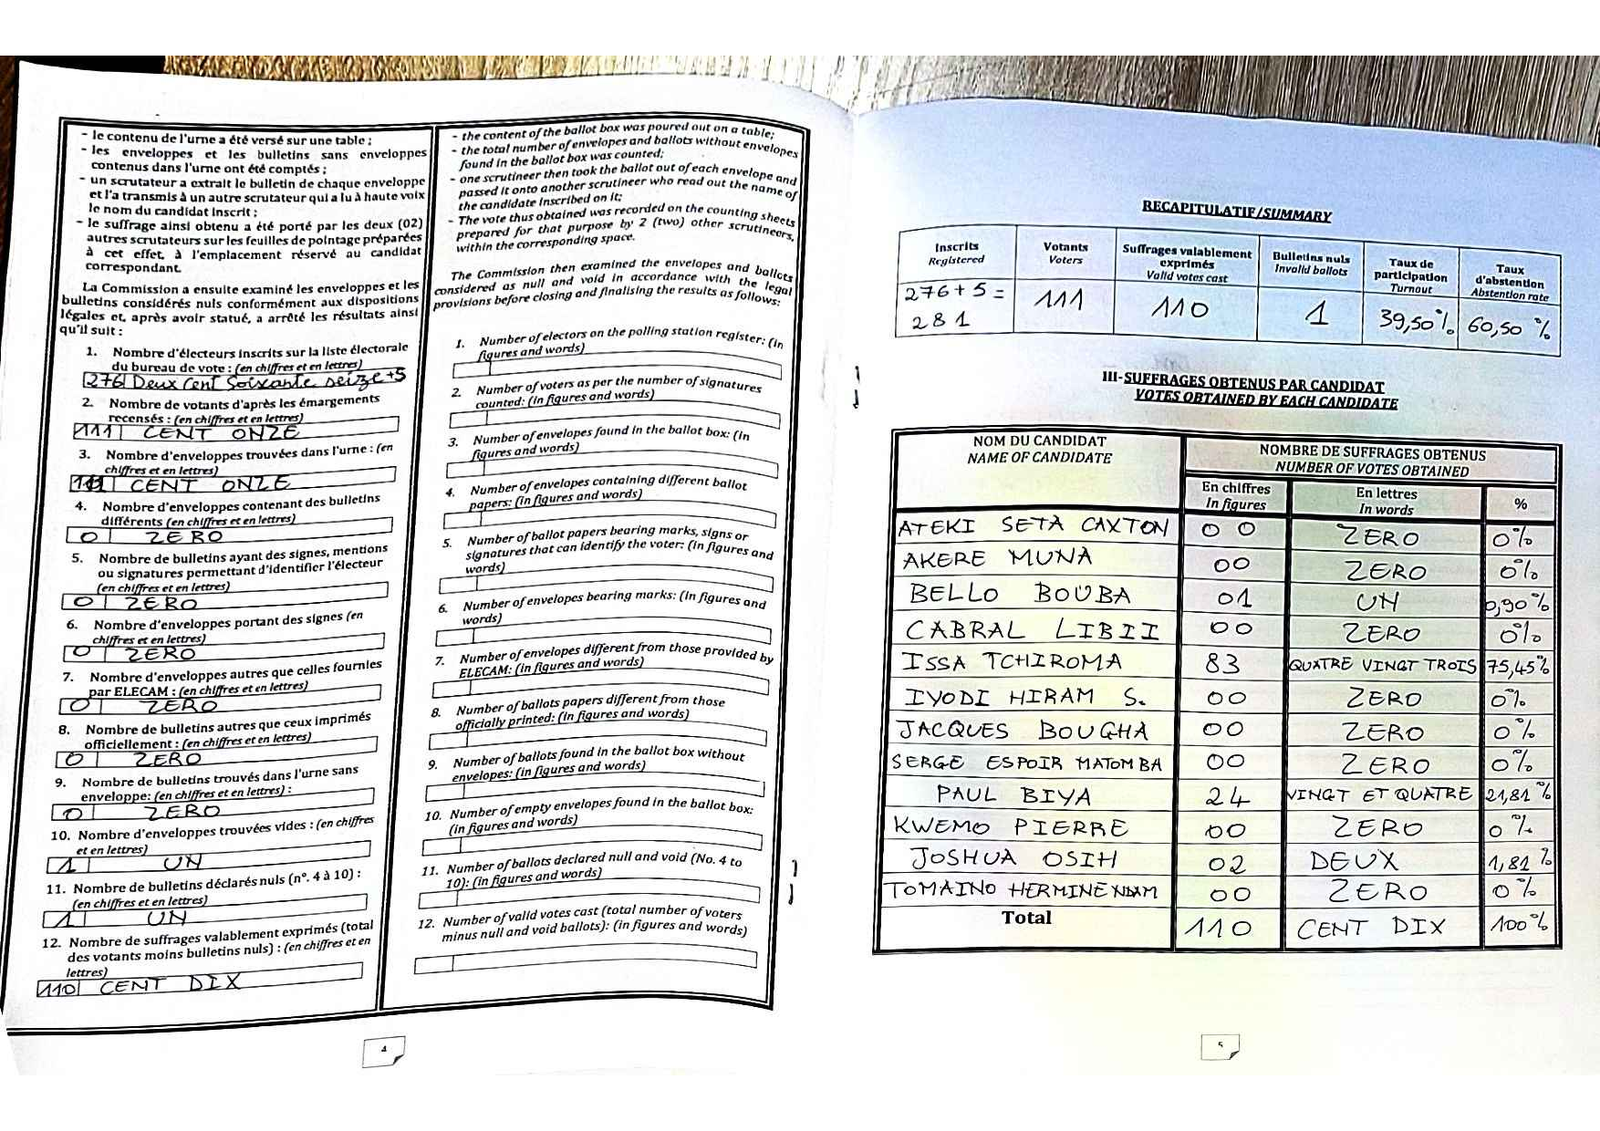 - le contenu de l'urne a été versé sur une table ;
- les enveloppes et les bulletins sans enveloppes
contenus dans l'urne ont été comptés ;
- un scrutateur a extrait le bulletin de chaque enveloppe
et l'a transmis à un autre scrutateur qui a lu à haute voix
le nom du candidat inscrit ;
- le suffrage ainsi obtenu a été porté par les deux (02)
autres scrutateurs sur les feuilles de pointage préparées
à cet effet, à l'emplacement réservé au candidat
correspondant.
La Commission a ensuite examiné les enveloppes et les
bulletins considérés nuls conformément aux dispositions
légales et, après avoir statué, a arrêté les résultats ainsi
qu'il suit :
1. Nombre d'électeurs inscrits sur la liste électorale
du bureau de vote : (en chiffres et en lettres)
276 Deux Cent Soixante seize +5
2. Nombre de votants d'après les émargements
recensés : (en chiffres et en lettres)
111 CENT ONZE
3. Nombre d'enveloppes trouvées dans l'urne : (en
chiffres et en lettres)
111 CENT ONZE
4. Nombre d'enveloppes contenant des bulletins
différents (en chiffres et en lettres)
0 ZERO
5. Nombre de bulletins ayant des signes, mentions
ou signatures permettant d'identifier l'électeur
(en chiffres et en lettres)
0 ZERO
6. Nombre d'enveloppes portant des signes (en
chiffres et en lettres)
0 ZERO
7. Nombre d'enveloppes autres que celles fournies
par ELECAM : (en chiffres et en lettres)
0 ZERO
8. Nombre de bulletins autres que ceux imprimés
officiellement : (en chiffres et en lettres)
0 ZERO
9. Nombre de bulletins trouvés dans l'urne sans
enveloppe: (en chiffres et en lettres) :
0 ZERO
10. Nombre d'enveloppes trouvées vides : (en chiffres
et en lettres)
1 UN
11. Nombre de bulletins déclarés nuls (n°. 4 à 10) :
(en chiffres et en lettres)
1 UN
12. Nombre de suffrages valablement exprimés (total
des votants moins bulletins nuls) : (en chiffres et en
lettres)
110 CENT DIX
- the content of the ballot box was poured out on a table;
- the total number of envelopes and ballots without envelopes
found in the ballot box was counted;
- one scrutineer then took the ballot out of each envelope and
passed it onto another scrutineer who read out the name of
the candidate inscribed on it;
- The vote thus obtained was recorded on the counting sheets
prepared for that purpose by 2 (two) other scrutineers,
within the corresponding space.
The Commission then examined the envelopes and ballots
considered as null and void in accordance with the legal
provisions before closing and finalising the results as follows:
1. Number of electors on the polling station register: (in
figures and words)
2. Number of voters as per the number of signatures
counted: (in figures and words)
3. Number of envelopes found in the ballot box: (in
figures and words)
4. Number of envelopes containing different ballot
papers: (in figures and words)
5. Number of ballot papers bearing marks, signs or
signatures that can identify the voter: (in figures and
words)
6. Number of envelopes bearing marks: (in figures and
words)
7. Number of envelopes different from those provided by
ELECAM: (in figures and words)
8. Number of ballots papers different from those
officially printed: (in figures and words)
9. Number of ballots found in the ballot box without
envelopes: (in figures and words)
10. Number of empty envelopes found in the ballot box:
(in figures and words)
11. Number of ballots declared null and void (No. 4 to
10): (in figures and words)
12. Number of valid votes cast (total number of voters
minus null and void ballots): (in figures and words)
4
RECAPITULATIF/SUMMARY
Inscrits Registered Votants Voters Suffrages valablement exprimés Valid votes cast Bulletins nuls Invalid ballots Taux de participation Turnout Taux d'abstention Abstention rate
276+5 = 281 111 110 1 39,50% 60,50 %
III-SUFFRAGES OBTENUS PAR CANDIDAT
VOTES OBTAINED BY EACH CANDIDATE
NOM DU CANDIDAT NOMBRE DE SUFFRAGES OBTENUS
NAME OF CANDIDATE NUMBER OF VOTES OBTAINED
En chiffres En lettres %
In figures In words
ATEKI SETA CAXTON 00 ZERO 0%
AKERE MUNA 00 ZERO 0%
BELLO BOUBA 01 UN 0,90%
CABRAL LIBII 00 ZERO 0%
ISSA TCHIROMA 83 QUATRE VINGT TROIS 75,45%
IYODI HIRAM S. 00 ZERO 0%
JACQUES BOUGHA 00 ZERO 0%
SERGE ESPOIR MATOMBA 00 ZERO 0%
PAUL BIYA 24 VINGT ET QUATRE 21,81 %
KWEMO PIERRE 00 ZERO 0 %
JOSHUA OSIH 02 DEUX 1,81 %
TOMAINO HERMINE NDAM 00 ZERO 0 %
Total 110 CENT DIX 100%
5